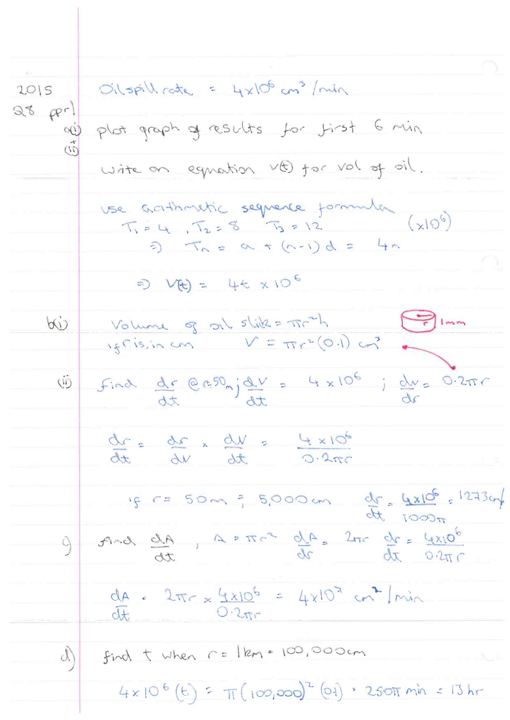 2015 Oil spill rate = 4x10⁶ cm³/min
Q8 ppr1
a(i) plot graph of results for first 6 min
(ii) + write on equation v(t) for vol of oil.
use arithmetic sequence formula
T₁ = 4 , T₂ = 8 T₃ = 12 (x10⁶)
⇒ Tn = a + (n-1)d = 4n
⇒ V(t) = 4t x 10⁶
b(i) Volume of oil slick = πr²h
r 1mm
if r is in cm V = πr²(0.1) cm³
(ii) find dr/dt @ r=50m ; dV/dt = 4 x 10⁶ ; dv/dr = 0.2πr
dr/dt = dr/dV x dV/dt = 4 x 10⁶/0.2πr
if r = 50m = 5,000cm dr/dt = 4x10⁶/1000π = 1273cm/
find dA/dt , A = πr² dA/dr = 2πr dr/dt = 4x10⁶/0.2πr
dA/dt = 2πr x 4x10⁶/0.2πr = 4x10⁷ cm²/min
d) find t when r = 1km = 100,000cm
4x10⁶(t) = π(100,000)²(0.1) = 250π min = 13hr